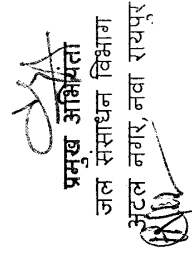 प्रमुख अभियंता
जल संसाधन विभाग
अटल नगर, नवा रायपुर